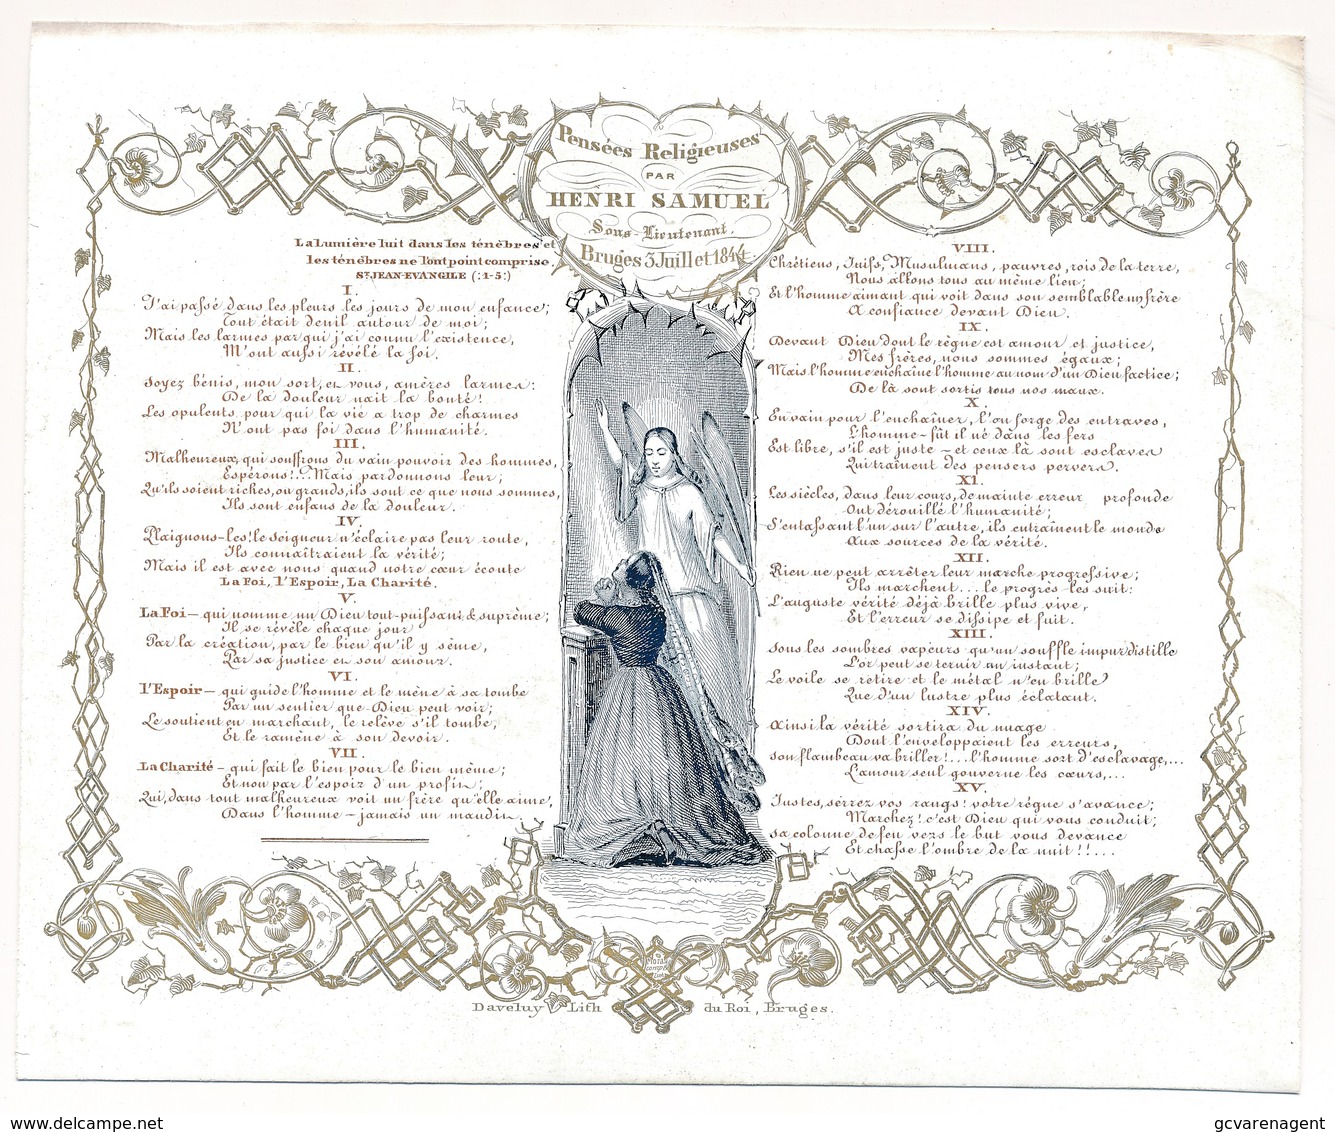 Pensées Religieuses
PAR
HENRI SAMUEL
Sous-Lieutenant.
Bruges 3 Juillet 1844.
La Lumière luit dans les ténèbres et
les ténèbres ne l'ont point comprise.
St. JEAN-EVANGILE (:1-5:)
I.
J'ai passé dans les pleurs les jours de mon enfance;
Tout était deuil autour de moi;
Mais les larmes par qui j'ai connu l'existence,
M'ont aussi révélé la foi.
II.
Soyez bénis, mon sort, et vous, amères larmes:
De la douleur nait la bonté!
Les opulents pour qui la vie a trop de charmes
N'ont pas foi dans l'humanité.
III.
Malheureux, qui souffrons du vain pouvoir des hommes,
Espérons!... Mais pardonnons leur;
Qu'ils soient riches, ou grands, ils sont ce que nous sommes,
Ils sont enfans de la douleur.
IV.
Plaignons-les! le Seigneur n'éclaire pas leur route,
Ils connaîtraient la vérité;
Mais il est avec nous quand notre cœur écoute
La Foi, l'Espoir, La Charité.
V.
La Foi — qui nomme un Dieu tout-puissant & suprème;
Il se révèle chaque jour
Par la création, par le bien qu'il y sème,
Par sa justice et son amour.
VI.
l'Espoir — qui guide l'homme et le mène à sa tombe
Par un sentier que Dieu peut voir;
Le soutient en marchant, le relève s'il tombe,
Et le ramène à son devoir.
VII.
La Charité — qui fait le bien pour le bien même;
Et non par l'espoir d'un profit;
Qui, dans tout malheureux voit un frère qu'elle aime,
Dans l'homme — jamais un maudit.
VIII.
Chrétiens, Juifs, Musulmans, pauvres, rois de la terre,
Nous allons tous au même lieu;
Et l'homme aimant qui voit dans son semblable un frère
A confiance devant Dieu.
IX.
Devant Dieu dont le règne est amour et justice,
Mes frères, nous sommes égaux;
Mais l'homme enchaîne l'homme au nom d'un Dieu factice;
De là sont sortis tous nos maux.
X.
En vain pour l'enchaîner, l'on forge des entraves,
L'homme — fût il né dans les fers
Est libre, s'il est juste — et ceux là sont esclaves
Qui traînent des pensers pervers.
XI.
Les siècles, dans leur cours, de mainte erreur profonde
Ont dérouillé l'humanité;
S'entassant l'un sur l'autre, ils entraînent le monde
Aux sources de la vérité.
XII.
Rien ne peut arrêter leur marche progressive;
Ils marchent... le progrès les suit:
L'auguste vérité déjà brille plus vive,
Et l'erreur se dissipe et fuit.
XIII.
Sous les sombres vapeurs qu'un souffle impur distille
L'or peut se ternir un instant;
Le voile se retire et le métal n'en brille
Que d'un lustre plus éclatant.
XIV.
Ainsi la vérité sortira du nuage
Dont l'enveloppaient les erreurs,
son flambeau va briller!... l'homme sort d'esclavage,...
L'amour seul gouverne les cœurs,...
XV.
Justes, serrez vos rangs! votre règne s'avance;
Marchez! c'est Dieu qui vous conduit;
sa colonne de feu vers le but vous devance
Et chasse l'ombre de la nuit!!...
Daveluy Lith du Roi, Bruges.
www.delcampe.net
gcvarenagent